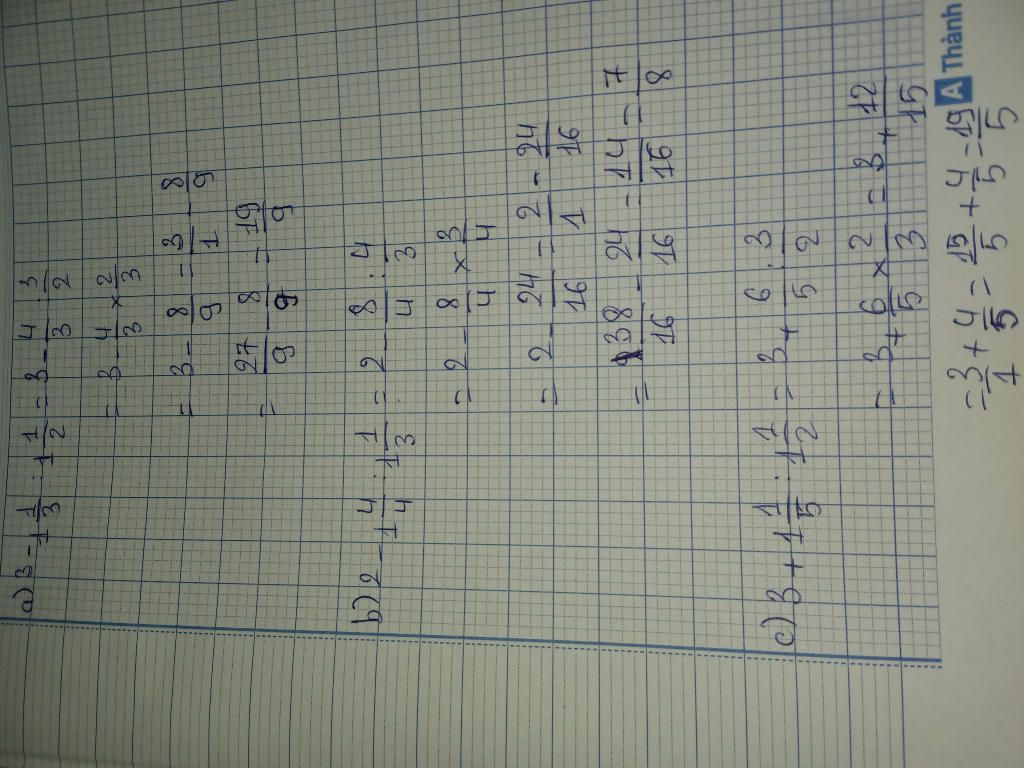 a) 3 - 1 1/3 : 1 1/2 = 3 - 4/3 : 3/2
= 3 - 4/3 × 2/3
= 3 - 8/9 = 3/1 - 8/9
= 27/9 - 8/9 = 19/9
b) 2 - 1 4/4 : 1 1/3 = 2 - 8/4 : 4/3
= 2 - 8/4 × 3/4
= 2 - 24/16 = 2/1 - 24/16
= 38/16 - 24/16 = 14/16 = 7/8
c) 3 + 1 1/5 : 1 1/2 = 3 + 6/5 : 3/2
= 3 + 6/5 × 2/3 = 3 + 12/15
= 3/1 + 4/5 = 15/5 + 4/5 = 19/5
A Thành